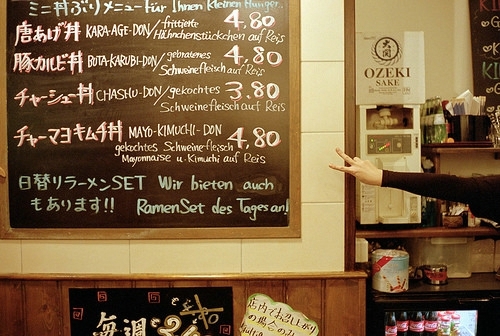 ミニ丼ぶりメニュー für Ihnen Kleinen Hunger..
唐あげ丼 KARA-AGE-DON/frittierte 4,80
Hähnchenstückchen auf Reis
豚カルビ丼 BUTA-KARUBI-DON/gebratenes 4,80
Schweinefleisch auf Reis
チャーシュー丼 CHASHU-DON/gekochtes 3.80
Schweinefleisch auf Reis
チャーマヨキムチ丼 MAYO-KIMUCHI-DON 4,80
gekochtes Schweine-fleisch
Mayonnaise u. Kimuchi auf Reis
日替りラーメンSET Wir bieten auch
もあります!! RamenSet des Tages an!
大関
OZEKI
SAKE
KI
毎週
店内でお召上がり
の場合のみ